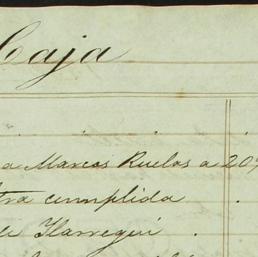 Caja
a Marcos Ruelas a 20
tra cumplida
de Ilarregui